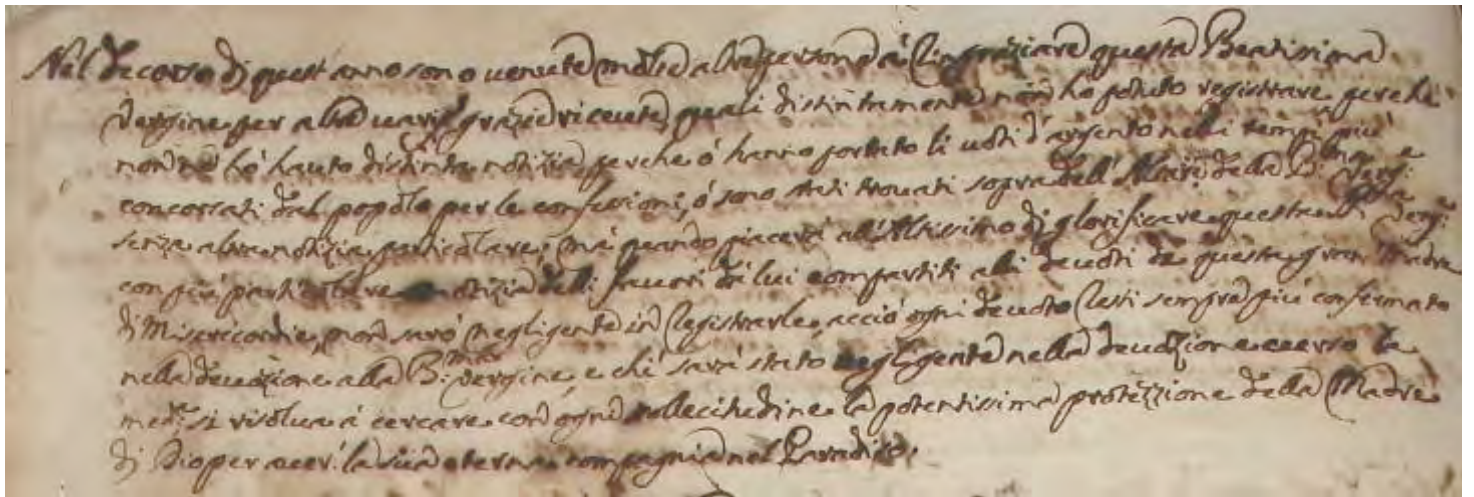 Nel decorso di quest anno sono venute molte altre persone à ringraziare questa Beatissima
Vergine per altre varie grazie ricevute, quali distintamente non ho potuto registrare perche
non ne hò hauto distinta notizia perche ò hanno portato li voti d'argento nelli tempi più
concorsati dal popolo per le confessioni, ò sono stati trovati sopra dell'Altare della B: Verg:e
senza altra notizia particolare, mà quando piacerà all'Altissimo di glorificare questa B: Verg:
con più particolare notizia delli favori dà lui compartiti alli devoti de questa gran Madre
di Misericordia, non sarò negligente in registrarle, acciò ogni devoto resti sempre più confermato
nella devozione alla B:ma Vergine, e chi sarà stato negligente nella devozione verso la
med:a si risolva à cercare con ogni sollecitudine la potentissima protezzione della Madre
di Dio per aver la sua eterna compagnia nel Paradiso.